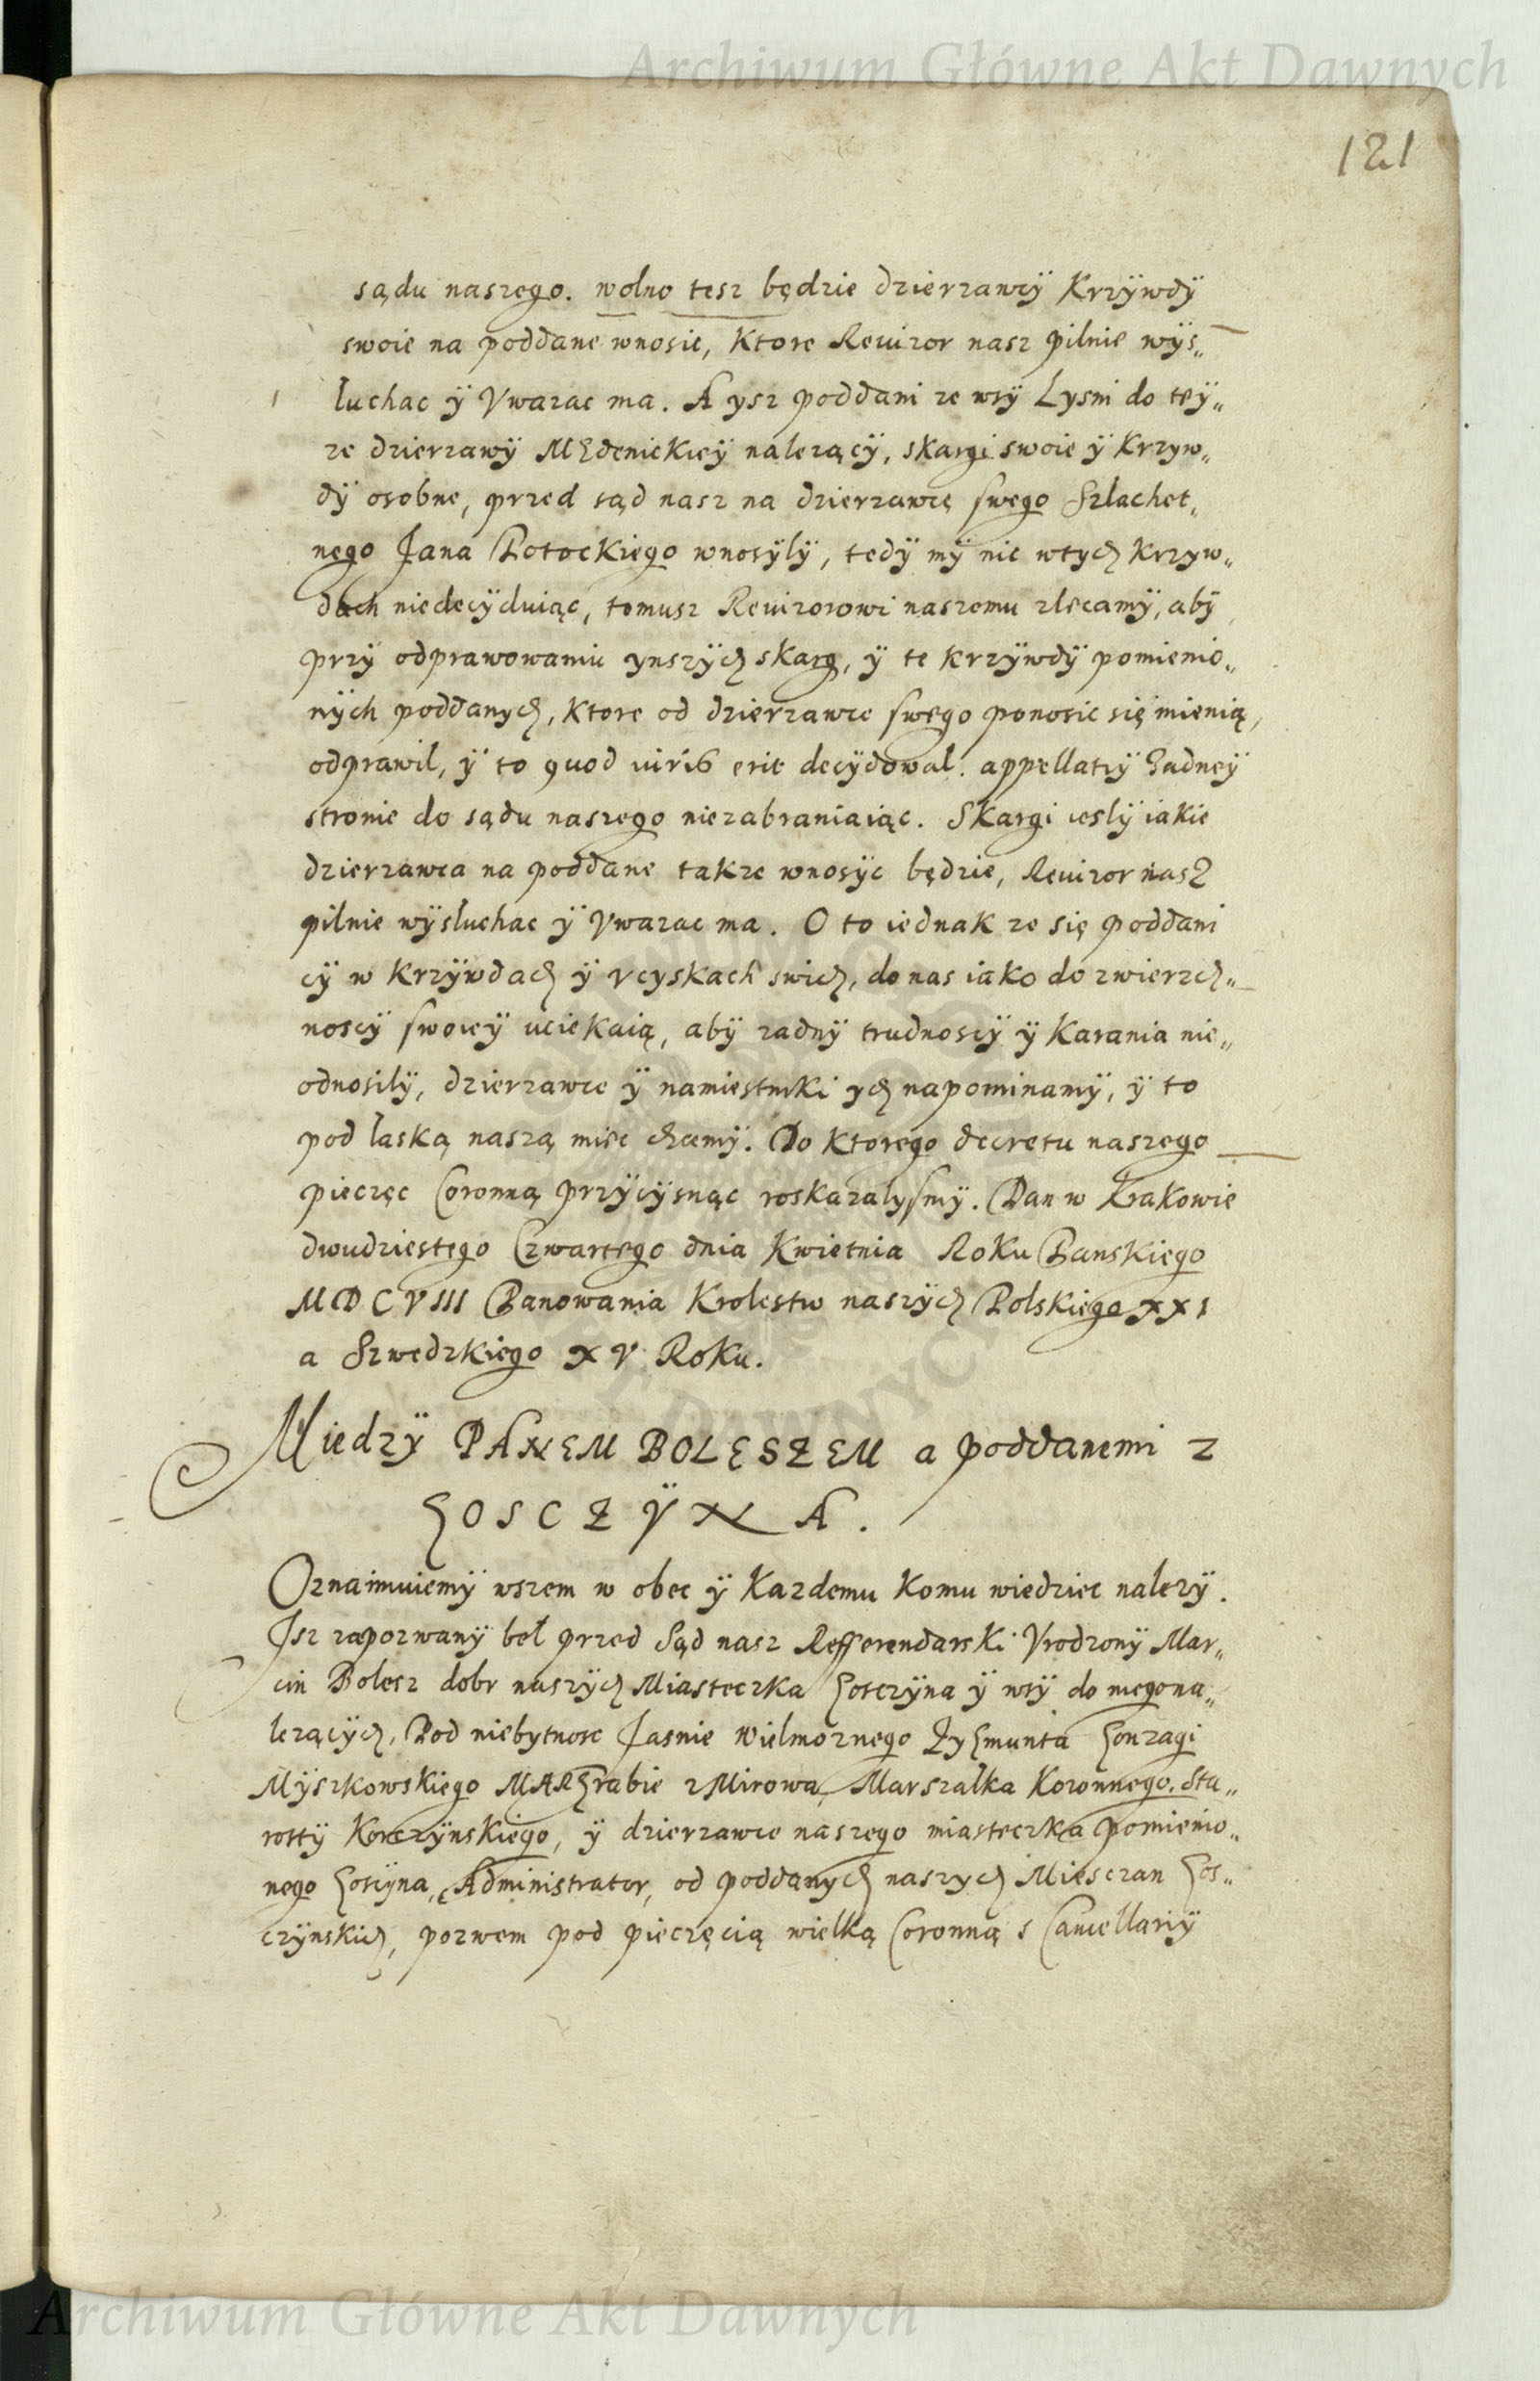 Archiwum Główne Akt Dawnych
121
sądu naszego. wolno tesz będzie dzierzawcÿ Krzÿwdÿ
swoie na poddane wnosic, Ktore Reuizor nasz pilnie wÿs„
luchac ÿ Vwazac ma. A ysz poddani ze wsÿ Lysni do teÿ„
ze dzierzawÿ MEdenickieÿ nalezącÿ, skargi swoie ÿ Krzyw„
dÿ osobne, przed sąd nasz na dzierzawcę swego Szlachet„
nego Jana Potockiego wnosÿlÿ, tedÿ mÿ nic wtych Krzyw„
dach niedecÿduiąc, tomusz Reuizorowi naszemu zlecamÿ, abÿ
przÿ odprawowaniu ynszÿch skarg, ÿ te Krzÿwdÿ pomienio„
nÿch poddanych, Ktore od dzierzawce swego ponosic się mienią,
odprawil, ÿ to quod iuris erit decÿdowal. appellatiÿ Zadneÿ
stronie do sądu naszego niezabraniaiąc. Skargi ieslÿ iakie
dzierzawca na poddane takze wnosÿc będzie, Reuizor nasz
pilnie wÿsluchac ÿ Vwazac ma. O to iednak ze się poddani
cÿ w Krzÿwdach ÿ vcyskach swich, do nas iako do zwierzch„
noscÿ swoieÿ uciekaią, abÿ zadnÿ trudnoscÿ ÿ Karania nie„
odnosilÿ, dzierzawce ÿ namiestniki ych napominamÿ, ÿ to
pod laską naszą miec chcemÿ. Do Ktorego decretu naszego
pieczęc Coronną przÿcÿsnąc roskazalysmÿ. Dan w Krakowie
dwudziestego Czwartego dnia Kwietnia Roku Panskiego
MDCVIII Panowania Krolestw naszÿch Polskiego XXI
a Szwedzkiego XV Roku.
Miedzÿ PANEM BOLESZEM a poddanemi z
GOSCZŸNA.
Oznaimuiemÿ wszem w obec ÿ Kazdemu Komu wiedziec nalezÿ.
Jsz zapozwanÿ bel przed Sąd nasz Refferendarski Vrodzonÿ Mar„
cin Bolesz dobr naszÿch Miasteczka Gosczÿna ÿ wsÿ do niego na„
lezącÿch, Pod niebytnosc Jasnie Wielmoznego Zygmunta Gonzagi
Mÿszkowskiego MARGrabie z Mirowa, Marszalka Koronnego. Sta„
rostÿ Korczÿnskiego, ÿ dzierzawce naszego miasteczka pomienio„
nego Goscÿna, Administrator, od poddanych naszych Miesczan Gos„
czÿnskich, pozwem pod pieczęcią wielką Coronną s Cancellariÿ
Archiwum Główne Akt Dawnych